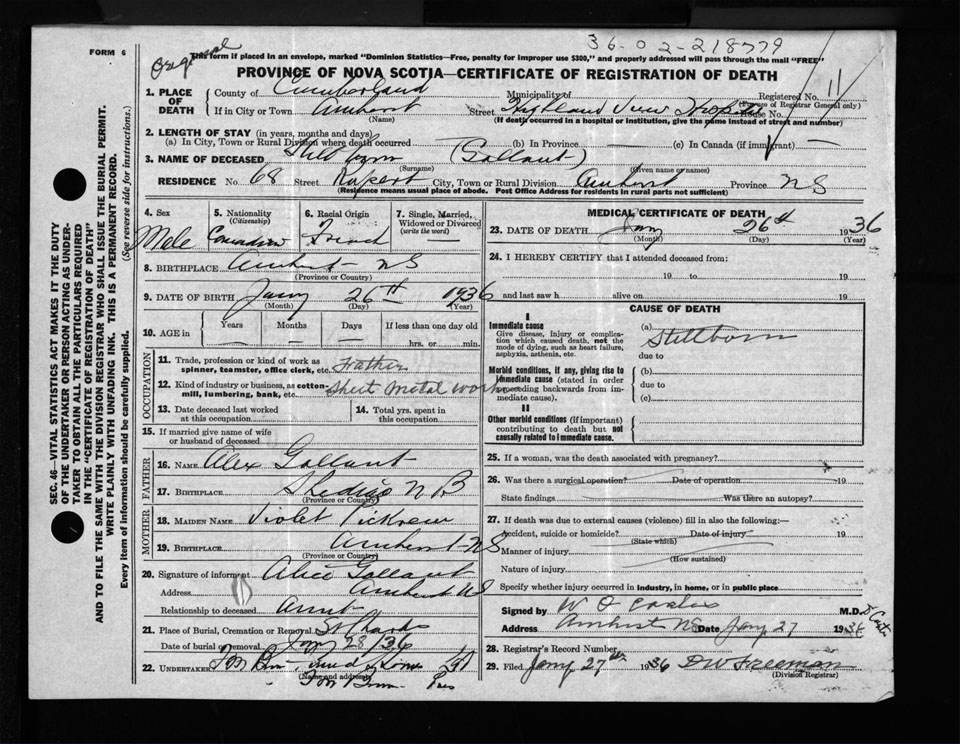 36-02-218779
FORM 6
Original
This form if placed in an envelope, marked "Dominion Statistics—Free, penalty for improper use $300," and properly addressed will pass through the mail "FREE"
PROVINCE OF NOVA SCOTIA—CERTIFICATE OF REGISTRATION OF DEATH
SEC. 46—VITAL STATISTICS ACT MAKES IT THE DUTY
OF THE UNDERTAKER OR PERSON ACTING AS UNDER-
TAKER TO OBTAIN ALL THE PARTICULARS REQUIRED
IN THE "CERTIFICATE OF REGISTRATION OF DEATH"
AND TO FILE THE SAME WITH THE DIVISION REGISTRAR WHO SHALL ISSUE THE BURIAL PERMIT.
WRITE PLAINLY WITH UNFADING INK. THIS IS A PERMANENT RECORD.
Every item of information should be carefully supplied. (See reverse side for instructions.)
1. PLACE OF DEATH
County of Cumberland Municipality of Registered No. 11
(For use of Registrar General only)
If in City or Town Amherst Street Highland View Hospital House No.
(Name) (If death occurred in a hospital or institution, give the name instead of street and number)
2. LENGTH OF STAY (in years, months and days)
(a) In City, Town or Rural Division where death occurred (b) In Province (c) In Canada (if immigrant) —
3. NAME OF DECEASED Stillborn (Gallant)
(Surname) (Given name or names)
RESIDENCE No. 68 Street Rupert City, Town or Rural Division Amherst Province NS
(Residence means usual place of abode. Post Office Address for residents in rural parts not sufficient)
4. Sex
Male
5. Nationality
(Citizenship)
Canadian
6. Racial Origin
French
7. Single, Married, Widowed or Divorced
(write the word)
—
8. BIRTHPLACE Amherst NS
(Province or Country)
9. DATE OF BIRTH Jany 26th 1936
(Month) (Day) (Year)
10. AGE in Years Months Days If less than one day old
hrs. or min.
OCCUPATION
11. Trade, profession or kind of work as
spinner, teamster, office clerk, etc. Father
12. Kind of industry or business, as cotton-
mill, lumbering, bank, etc. Sheet metal work
13. Date deceased last worked
at this occupation
14. Total yrs. spent in
this occupation
15. If married give name of wife
or husband of deceased
FATHER
16. NAME Alex Gallant
17. BIRTHPLACE Shediac N B
(Province or Country)
MOTHER
18. MAIDEN NAME Violet
19. BIRTHPLACE Amherst NS
(Province or Country)
20. Signature of informant Alice Gallant
Address Amherst NS
Relationship to deceased Aunt
21. Place of Burial, Cremation or Removal St Charles
Date of burial or removal Jany 28/36
22. UNDERTAKER
(Name and address)
MEDICAL CERTIFICATE OF DEATH
23. DATE OF DEATH Jany 26th 1936
(Month) (Day) (Year)
24. I HEREBY CERTIFY that I attended deceased from:
19 to 19
and last saw h alive on 19
CAUSE OF DEATH
I
Immediate cause
Give disease, injury or complica-
tion which caused death, not the
mode of dying, such as heart failure,
asphyxia, asthenia, etc.
(a) Stillborn
due to
Morbid conditions, if any, giving rise to
immediate cause (stated in order
proceeding backwards from im-
mediate cause).
(b)
due to
(c)
II
Other morbid conditions (if important)
contributing to death but not
causally related to immediate cause.
25. If a woman, was the death associated with pregnancy?
26. Was there a surgical operation? Date of operation 19
State findings Was there an autopsy?
27. If death was due to external causes (violence) fill in also the following:—
Accident, suicide or homicide? Date of injury 19
(State which)
Manner of injury
(How sustained)
Nature of injury
Specify whether injury occurred in industry, in home, or in public place
Signed by W O M.D.
Address Amherst NS Date Jany 27 1936
28. Registrar's Record Number
29. Filed Jany 27th 1936 DW Freeman
(Division Registrar)